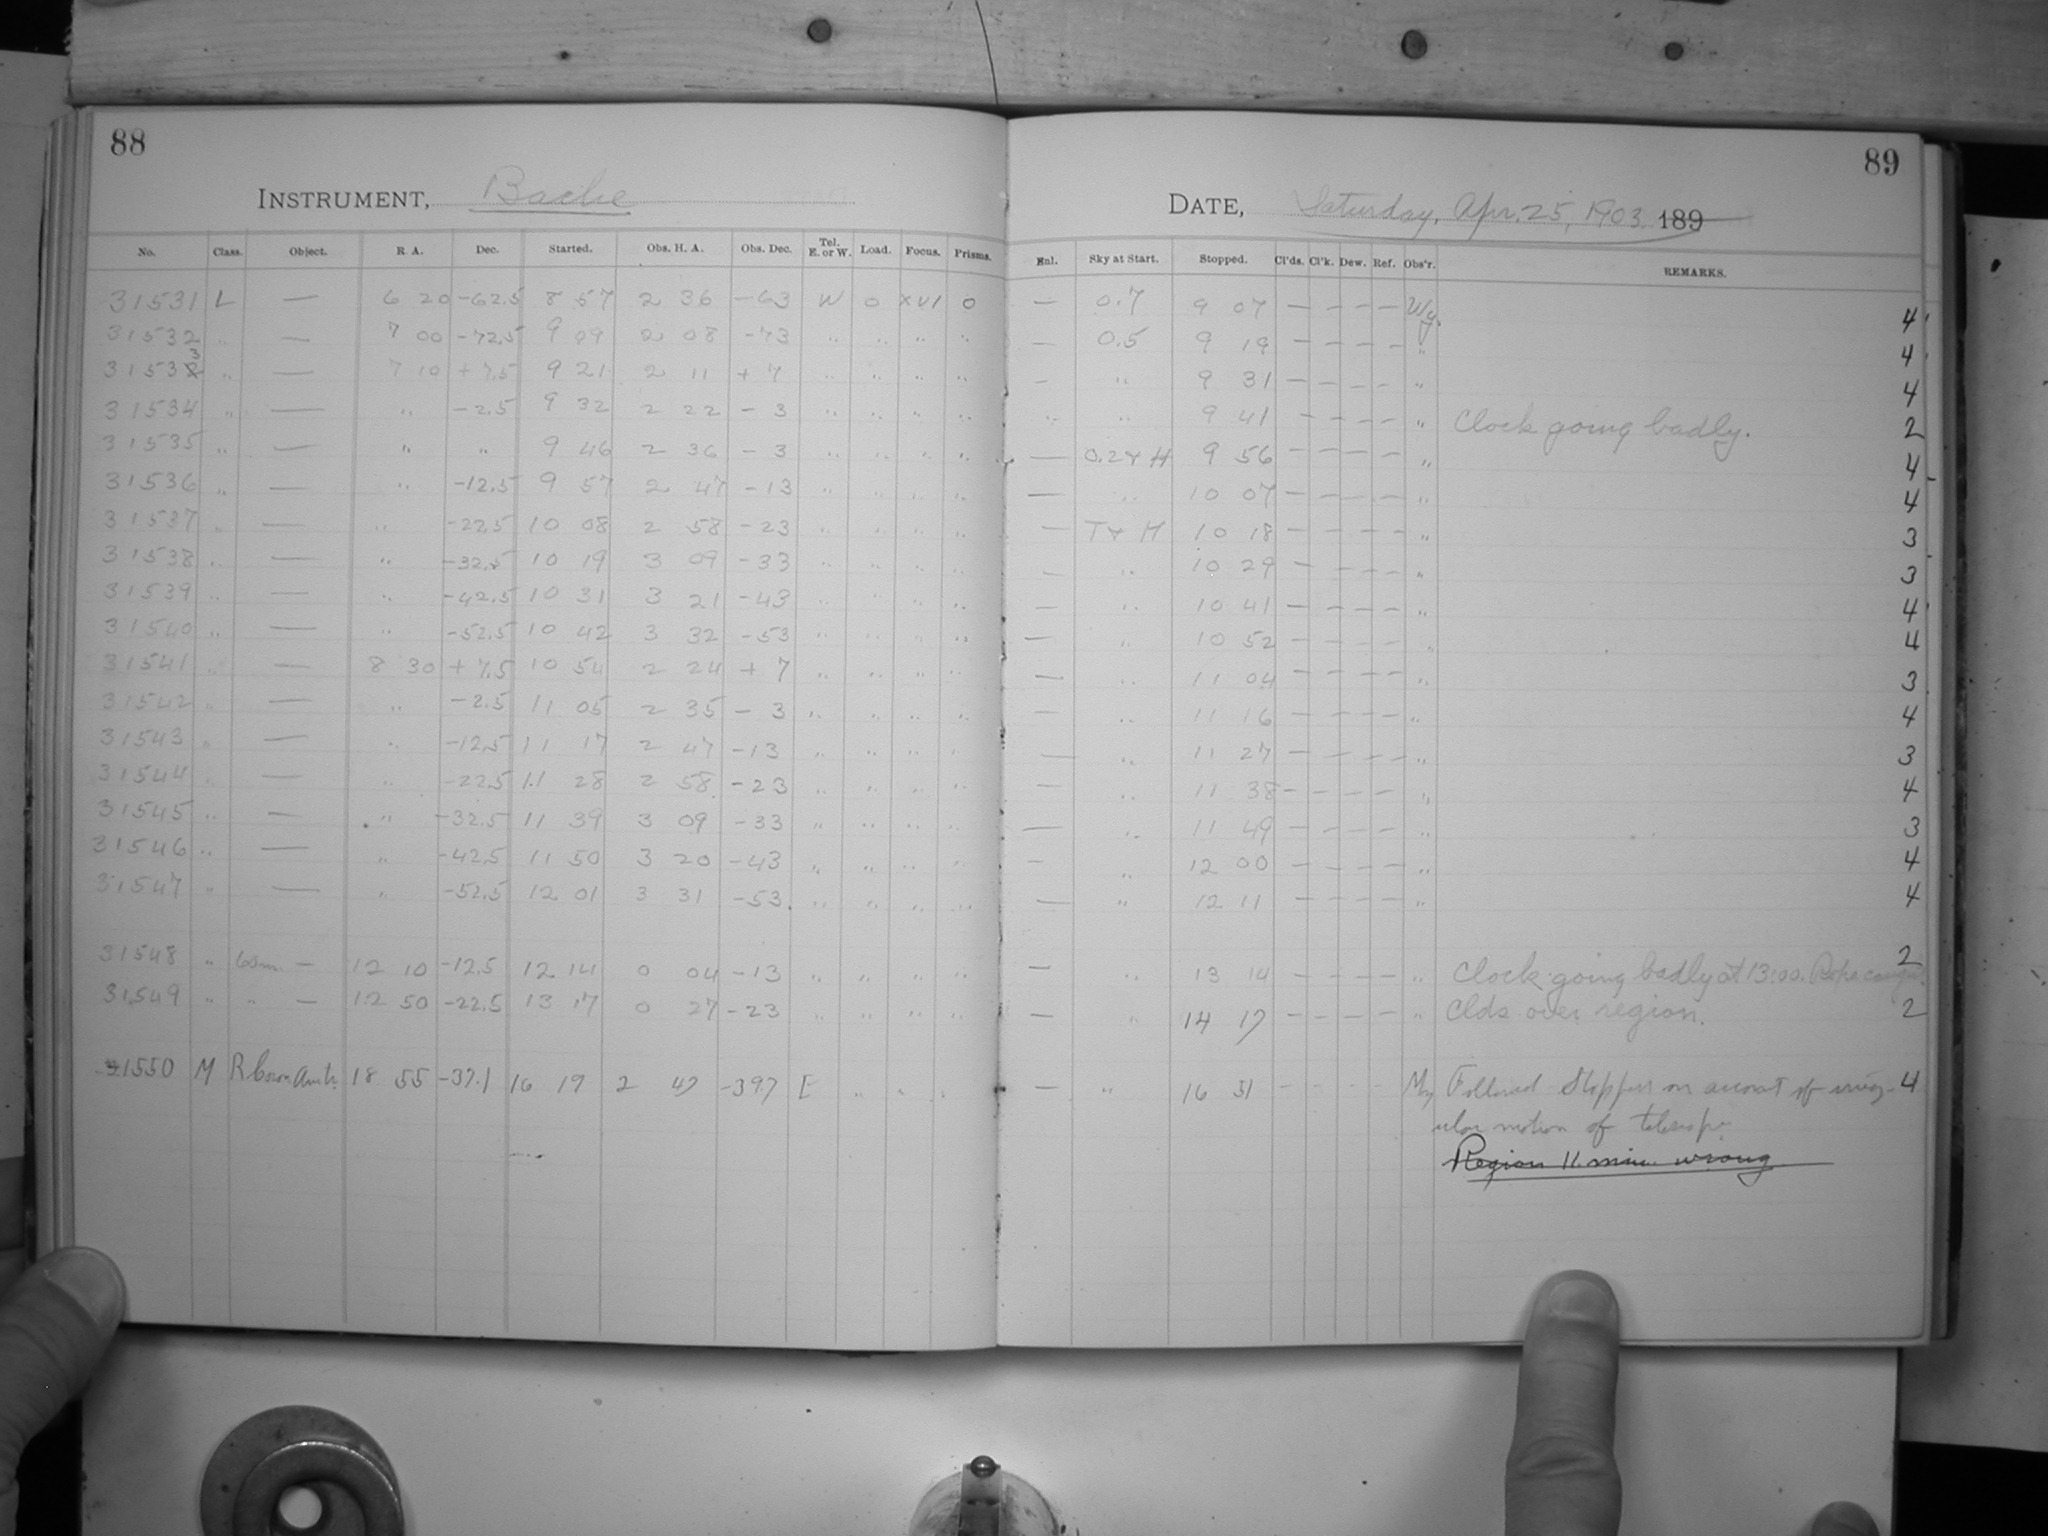 88
INSTRUMENT, Bache
No. Class. Object. R. A. Dec. Started. Obs. H. A. Obs. Dec. Tel. E. or W. Load. Focus. Prisms.
31531 L — 6 20 -62.5 8 57 2 36 -63 W 0 XVI 0
31532 " — 7 00 -72.5 9 09 2 08 -73 " " " "
315323 " — 7 10 +7.5 9 21 2 11 +7 " " " "
31534 " — " -2.5 9 32 2 22 -3 " " " "
31535 " — " " 9 46 2 36 -3 " " " "
31536 " — " -12.5 9 57 2 47 -13 " " " "
31537 " — " -22.5 10 08 2 58 -23 " " " "
31538 " — " -32.5 10 19 3 09 -33 " " " "
31539 " — " -42.5 10 31 3 21 -43 " " " "
31540 " — " -52.5 10 42 3 32 -53 " " " "
31541 " — 8 30 +7.5 10 54 2 24 +7 " " " "
31542 " — " -2.5 11 05 2 35 -3 " " " "
31543 " — " -12.5 11 17 2 47 -13 " " " "
31544 " — " -22.5 11 28 2 58 -23 " " " "
31545 " — " -32.5 11 39 3 09 -33 " " " "
31546 " — " -42.5 11 50 3 20 -43 " " " "
31547 " — " -52.5 12 01 3 31 -53 " " " "
31548 " 60m. — 12 10 -12.5 12 14 0 04 -13 " " " "
31549 " " — 12 50 -22.5 13 17 0 27 -23 " " " "
31550 M R Coron. Aust. 18 55 -37.1 16 19 2 47 -397 E " " "
89
DATE, Saturday, Apr. 25, 1903. 189
Enl. Sky at Start. Stopped. Cl'ds. Cl'k. Dew. Ref. Obs'r. REMARKS.
— 0.7 9 07 — — — — Wy. 4
— 0.5 9 19 — — — — " 4
— " 9 31 — — — — " 4
" " 9 41 — — — — " Clock going badly. 2
— 0.2 + H 9 56 — — — — " 4
— " 10 07 — — — — " 4
— T + H 10 18 — — — — " 3
— " 10 29 — — — — " 3
— " 10 41 — — — — " 4
— " 10 52 — — — — " 4
— " 11 04 — — — — " 3
— " 11 16 — — — — " 4
— " 11 27 — — — — " 3
— " 11 38 — — — — " 4
— " 11 49 — — — — " 3
— " 12 00 — — — — " 4
— " 12 11 — — — — " 4
— " 13 14 — — — — " Clock going badly at 13:00. Rope 2
— " 14 17 — — — — " Clds over region. 2
— " 16 31 - - - - My Followed Stopped on account of irreg- 4
ular motion of telescope.
Region 11. min. wrong